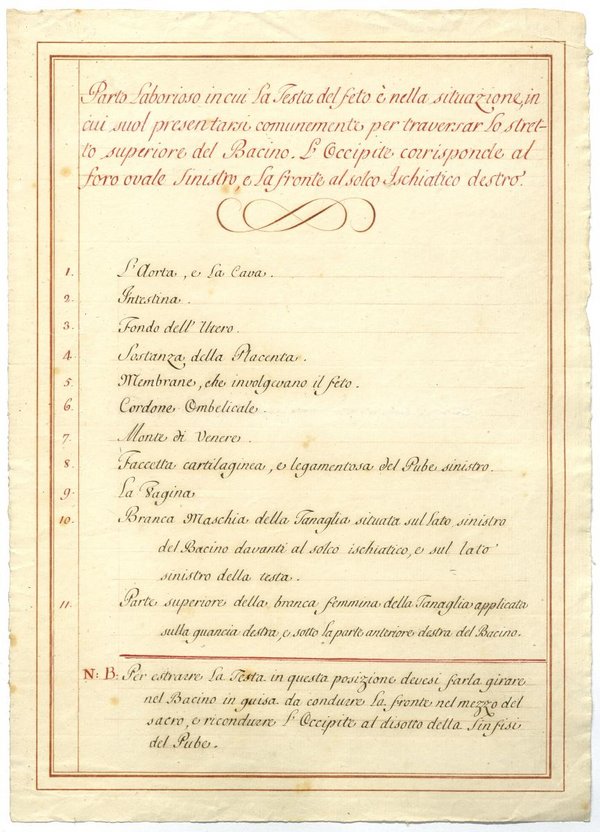 Parto Laborioso in cui La Testa del feto è nella situazione, in
cui suol presentarsi comunemente per traversar Lo stret-
to superiore del Bacino. L'Occipite corrisponde al
foro ovale Sinistro, e La fronte al solco Ischiatico destro.
1. L'Aorta, e La Cava.
2. Intestina.
3. Fondo dell'Utero.
4. Sostanza della Placenta.
5. Membrane, che involgevano il feto.
6. Cordone Ombelicale.
7. Monte di Venere.
8. Faccetta cartilaginea, e legamentosa del Pube sinistro.
9. La Vagina
10. Branca Maschia della Tanaglia situata sul Lato sinistro
del Bacino davanti al solco ischiatico, e sul lato
sinistro della testa.
11. Parte superiore della branca femmina della Tanaglia applicata
sulla guancia destra, e sotto La parte anteriore destra del Bacino.
N: B: Per estrarre La Testa in questa posizione devesi farla girare
nel Bacino in guisa da condurre La fronte nel mezzo del
sacro, e ricondurre L'Occipite al disotto della Sinfisi
del Pube.